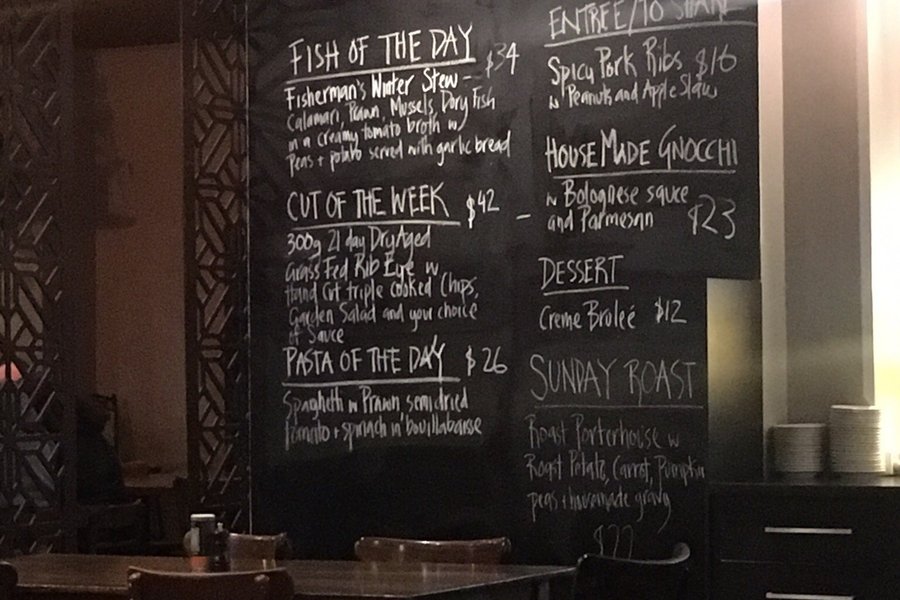 FISH OF THE DAY $34
Fisherman's Winter Stew -
Calamari, Prawn, Mussels, Dory Fish
in a creamy tomato broth w
peas + potato served with garlic bread
CUT OF THE WEEK $42 -
300g 21 day Dry Aged
Grass Fed Rib Eye w
Hand Cut triple cooked Chips,
Garden Salad and your choice
of Sauce
PASTA OF THE DAY $26
Spaghetti w Prawn semi dried
tomato + spinach in bouillabaisse
ENTREE/TO SHARE
Spicy Pork Ribs $16
w Peanuts and Apple Slaw
HOUSE MADE GNOCCHI
w Bolognese sauce
and Parmesan $23
DESSERT
Creme Bruleé $12
SUNDAY ROAST
Roast Porterhouse w
Roast Potato, Carrot, Pumpkin
peas + housemade gravy
$22